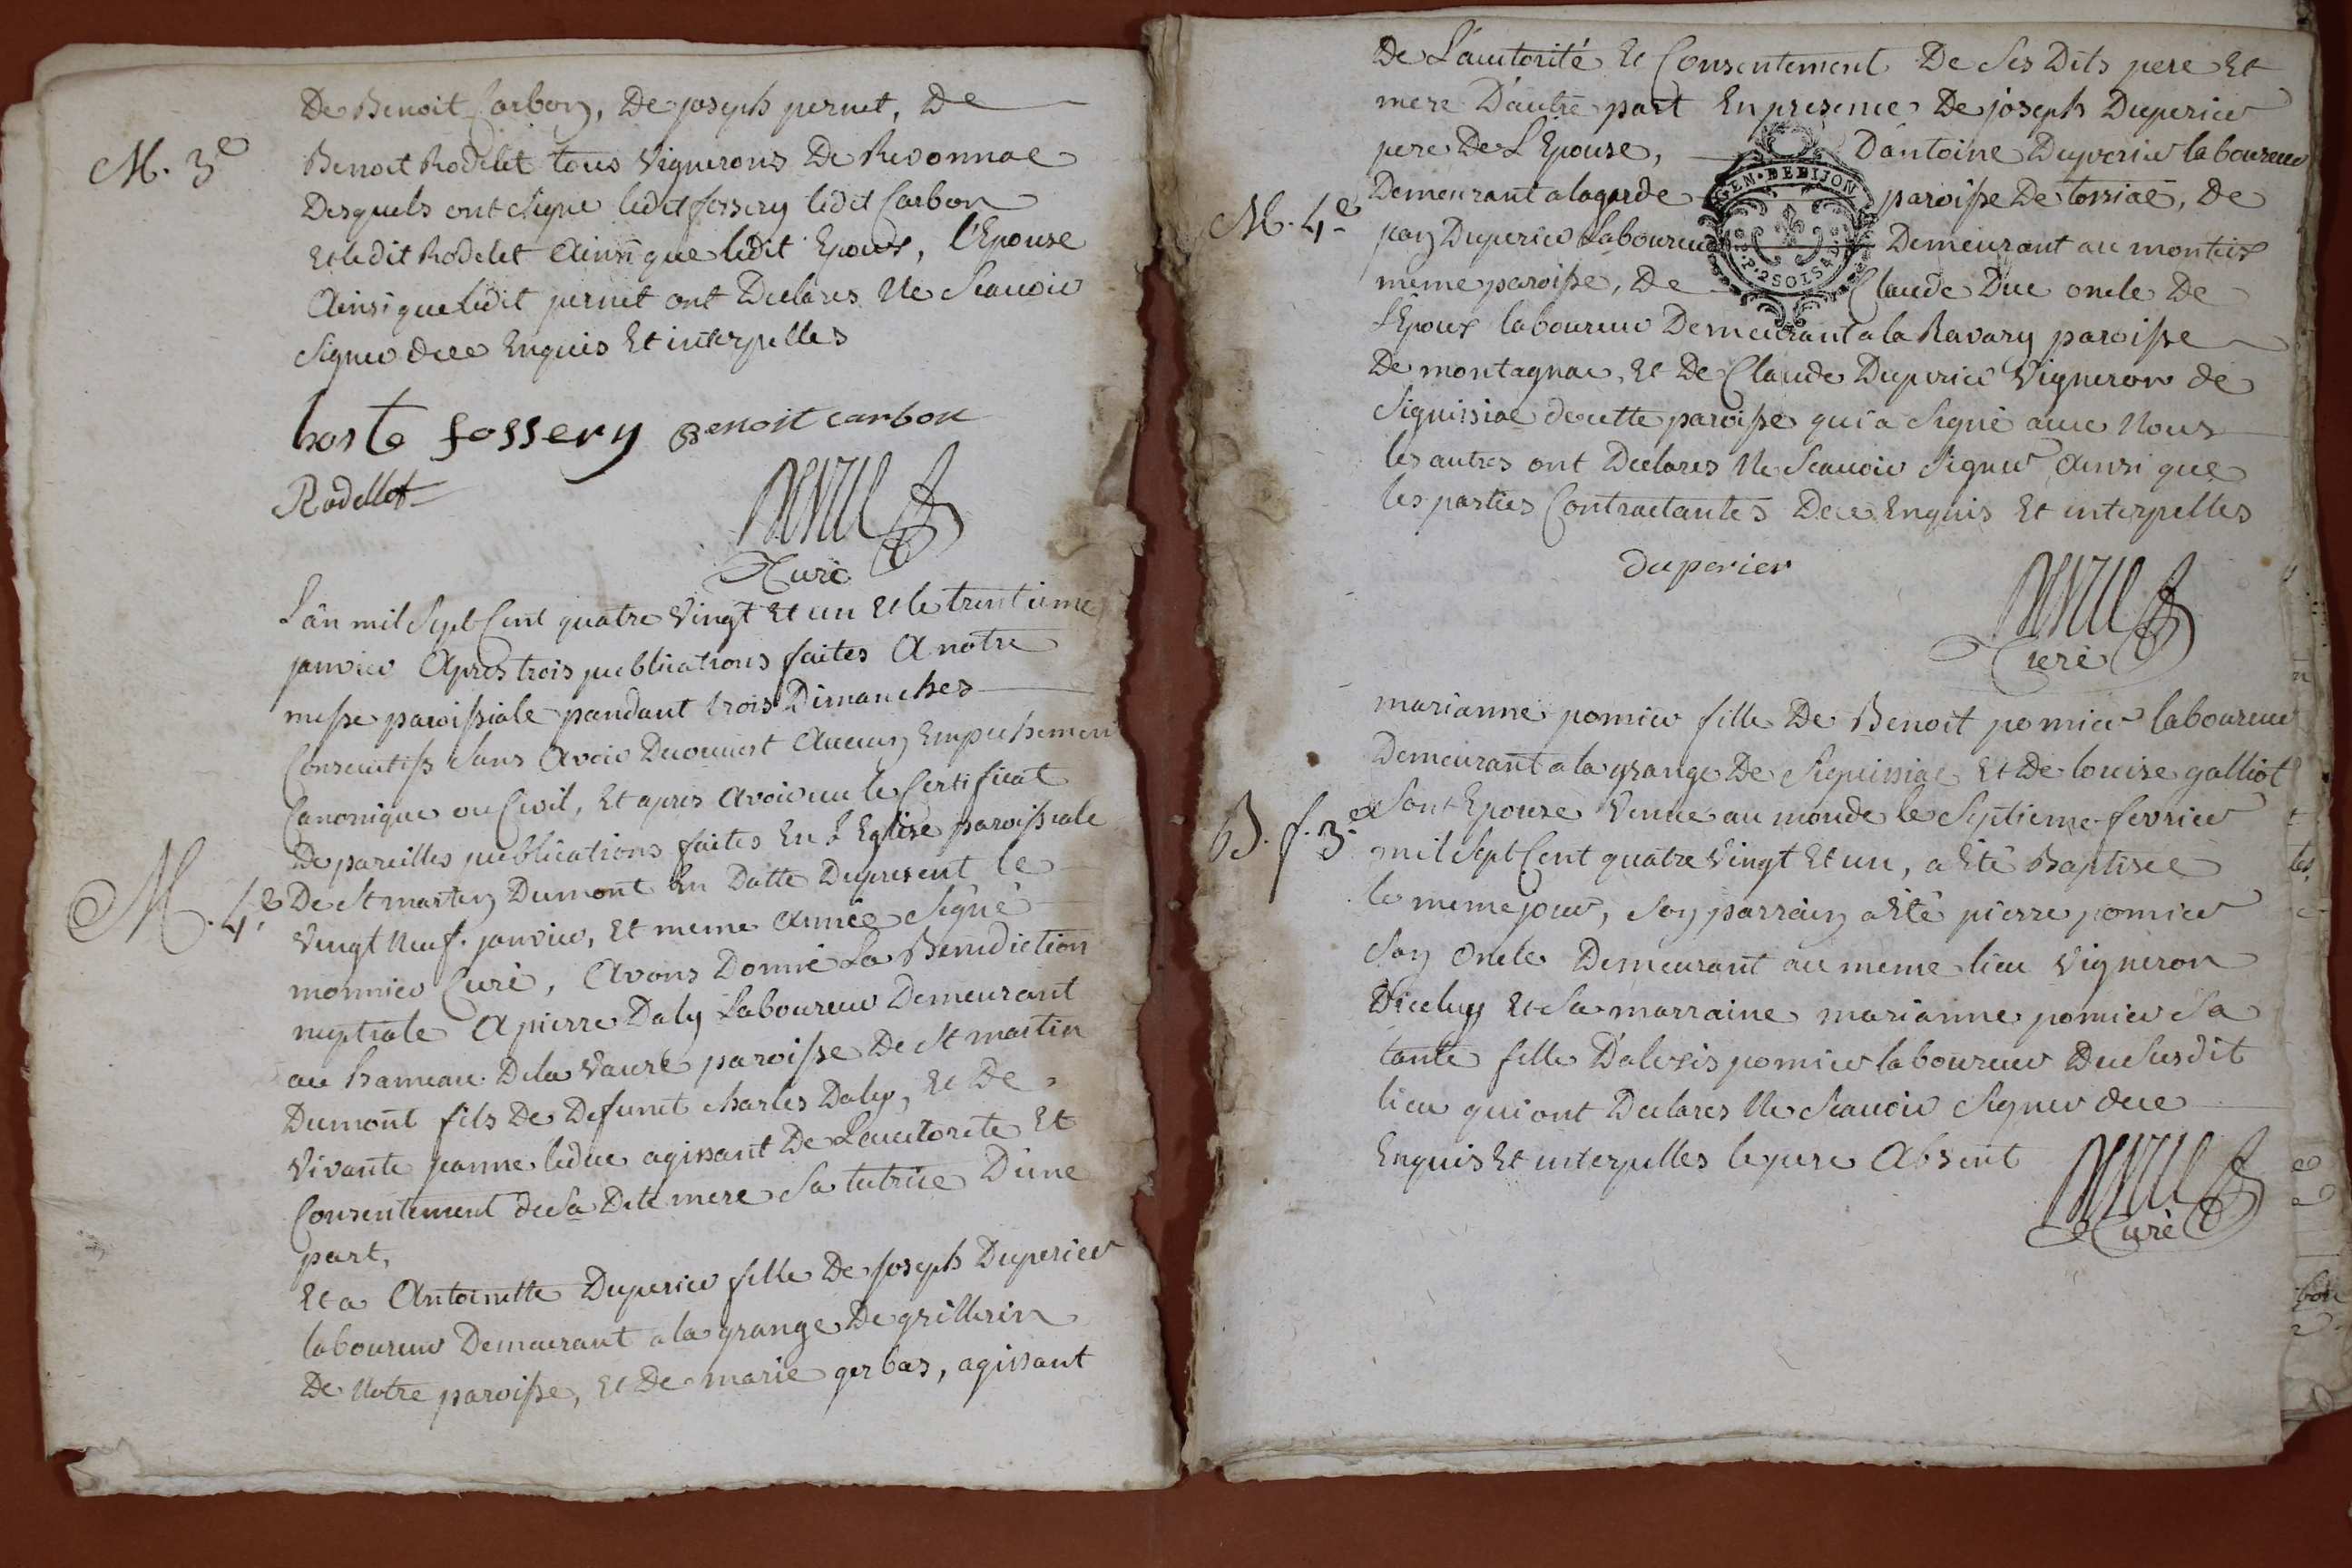 M. 3e
De Benoit Carbon, De joseph pernet, De
Benoit Rodelet tous Vignerons De Revonnac
Desquels ont signe ledit fossery ledit Carbon
Et ledit Rodelet Ainsi que ledit Epoux, l'Epouse
Ainsi que ledit pernet ont Declares Ne Scauoir
Signer dece Enquis Et interpelles
hoste fossery Benoit carbon
Rodellet
Curé
M. 4e
L'an mil Sept Cent quatre Vingt Et un Et le trentieme
janvier Apres trois publications faites A notre
messe paroissiale pandant trois Dimanches
Consecutifs Sans Avoir Decouuert Aucun Empechement
Canonique ou Civil, Et apres Avoir vu le Certificat
De pareilles publications faites En L'Eglise paroissiale
De St martin Dumont En Datte Dupresent le
Vingt Neuf. janvier, Et meme Année Signé
monnier Curé, Avons Donné La Benediction
nuptiale A pierre Daly Laboureur Demeurant
au hameau Dela Vaure paroisse De St martin
Dumont fils De Defunct charles Daly, Et De
Vivante jeanne leduc agissant De Lautorite Et
Consentement de Sa Dite mere Sa tutrice Dune
part,
Et a Antoinette Duperier fille De Joseph Duperier
laboureur Demeurant a la grange De grillerin
De Notre paroisse, Et De marie gerbas, agissant
M. 4e
De L'autorité Et Consentement De Ses Dits pere Et
mere D'autre part En presence De joseph Duperier
pere De L'Epouse, D'antoine Duperier laboureur
Demeurant a lagarde paroisse De tossiac, De
pay Duperier Laboureur Demeurant au montix
meme paroisse, De Claude Duc oncle De
L'Epoux laboureur Demeurant a la Ravary paroisse
De montagnac, Et De Claude Duperier Vigneron de
Siguissiac decette paroisse qui a Signé auec Nous
les autres ont Declares Ne Scauoir Signer Ainsi que
les parties Contractantes Dece Enquis Et interpelles
GEN. DE DIJON
P. 2 SOLS 4 D
duperier
Curé
B. f. 3e
marianne pomier fille De Benoit pomier laboureur
Demeurant a la grange De Siguissiac Et De louise galliot
Sont Epouse Venue au monde le Septieme fevrier
mil Sept Cent quatre Vingt Et un, a Eté Baptisée
le meme jour, Son parrain a Eté pierre pomier
Son Oncle Demeurant au meme lieu Vigneron
Diceluy Et Sa marraine marianne pomier Sa
tante fille D'alexis pomier laboureur Dususdit
lieu qui ont Declares Ne Scauoir Signer dece
Enquis Et interpelles le pere Absent
Curé